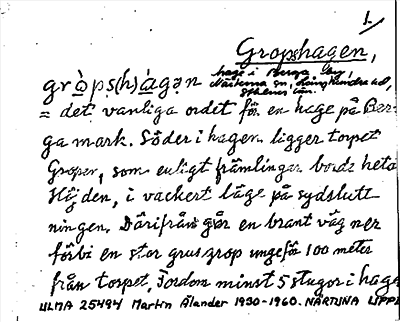 1.
Gropshagen,
gròps(h)àgan hage i Berga by,
Närtuna sn, Långhundra hd,
= det vanliga ordet för en hage på Ber-
ga mark. Söder i hagen ligger torpet
Gropen, som enligt främlingar borde heta
Höjden, i vackert läge på sydslutt
ningen. Därifrån går en brant väg ner
förbi en stor grusgrop ungefär 100 meter
från torpet. Fordom minst 5 stugor i hage
ULMA 25494 Martin Ålander 1930-1960. NÄRTUNA UPPL